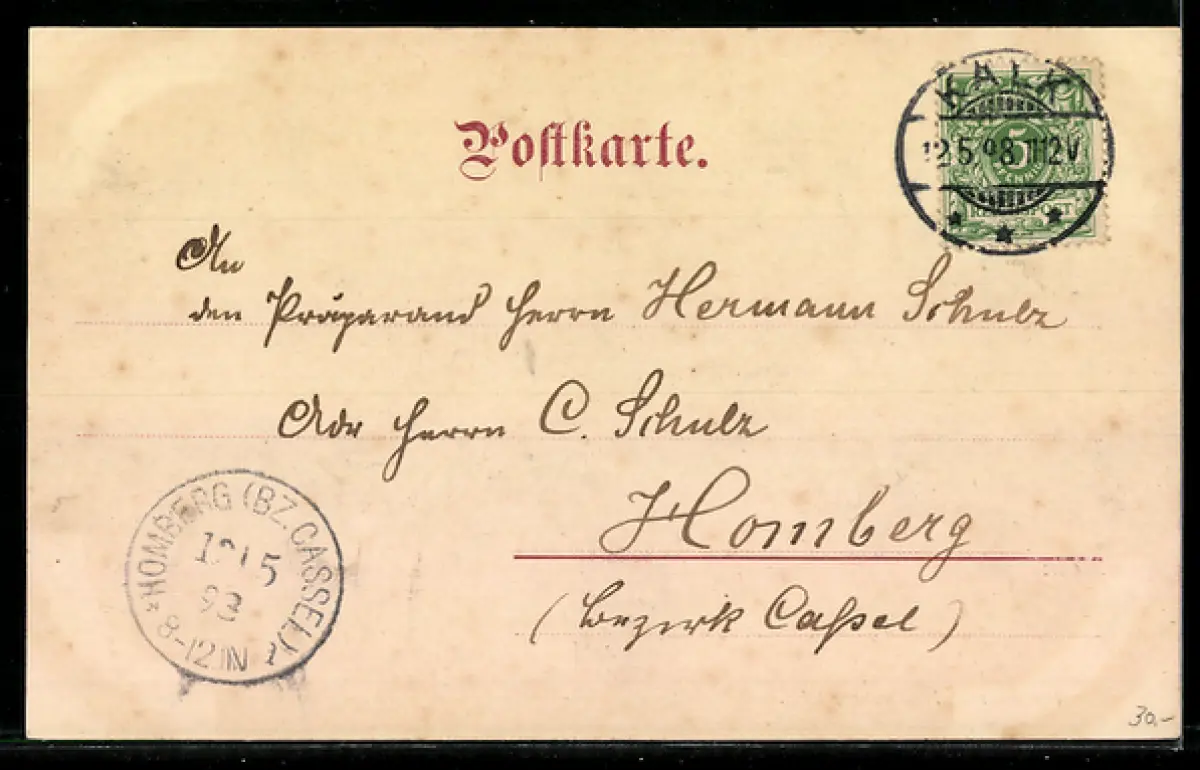 Postkarte.
KALK
12.5.98.11-12V
5
PFENNIG
REICHSPOST
An
den Präparand Herrn Hermann Schulz
Adr Herrn C. Schulz
Homberg
(Bezirk Cassel)
* HOMBERG (BZ. CASSEL)
5
8-12 N
30.-